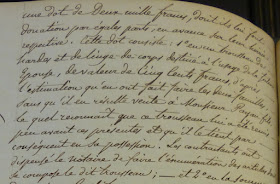 une dot de Deux mille francs, dont ils lui font
donation par égales parts, en avance sur leur
respective. Cette dot consiste, 1° en un trousseau de
hardes et de linge de corps destiné à l'usage de la future
Épouse, de valeur de Cinq cents francs, d'après
l'estimation qu'en ont fait faire les deux familles
sans qu'il en résulte vente à Monsieur
le quel reconnait que ce trousseau lui a été remis
peu avant ces présentes et qu'il le tient par
conséquent en sa possession. Les contractants ont
dispensé le Notaire de faire l'énumération des articles
compose le dit trousseau; — et 2° en la somme